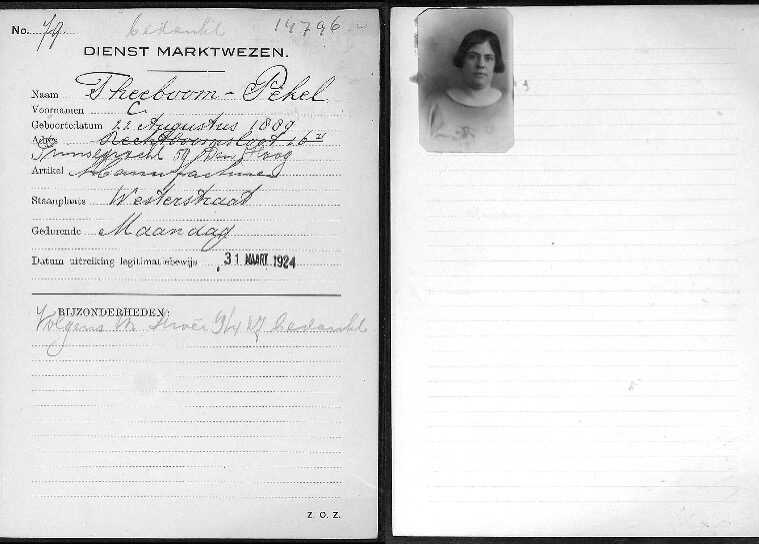 No. 79. bedankt 14796
DIENST MARKTWEZEN.
Naam Theeboom - Pekel
Voornamen C.
Geboortedatum 22 Augustus 1889
Adres Rechtboomsloot
Prinsegracht 59 Den Haag
Artikel Manufacturen
Staanplaats Westerstraat
Gedurende Maandag
Datum uitreiking legitimatiebewijs 31 MAART 1924
BIJZONDERHEDEN:
Volgens bedankt
Z. O. Z.